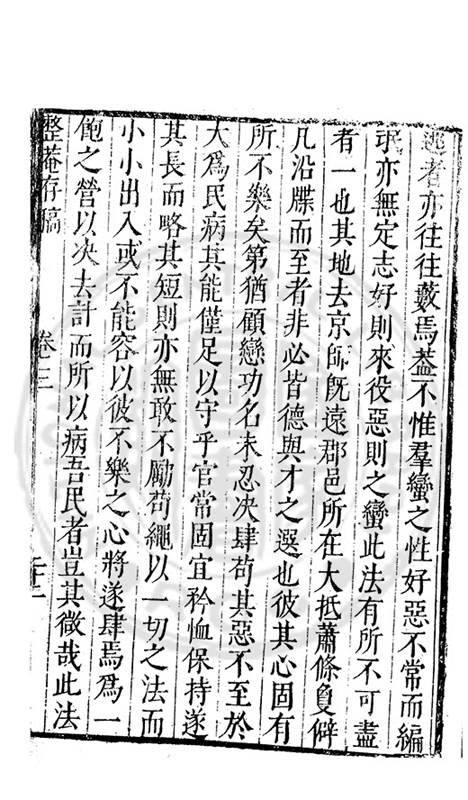 逃者亦往往藪焉蓋不惟羣蠻之性好惡不常而編
氓亦無定志好則來役惡則之蠻此法有所不可盡
者一也其地去京師既遠郡邑所在大抵蕭條負僻
凡沿牒而至者非必皆德與才之選也彼其心固有
所不樂矣第猶顧戀功名未忍决肆苟其惡不至於
大爲民病其能僅足以守乎官常固宜矜恤保持遂
其長而略其短則亦無敢不勵苟繩以一切之法而
小小出入或不能容以彼不樂之心將遂肆焉爲一
飽之營以决去計而所以病吾民者豈其微哉此法
整菴存稿
卷三